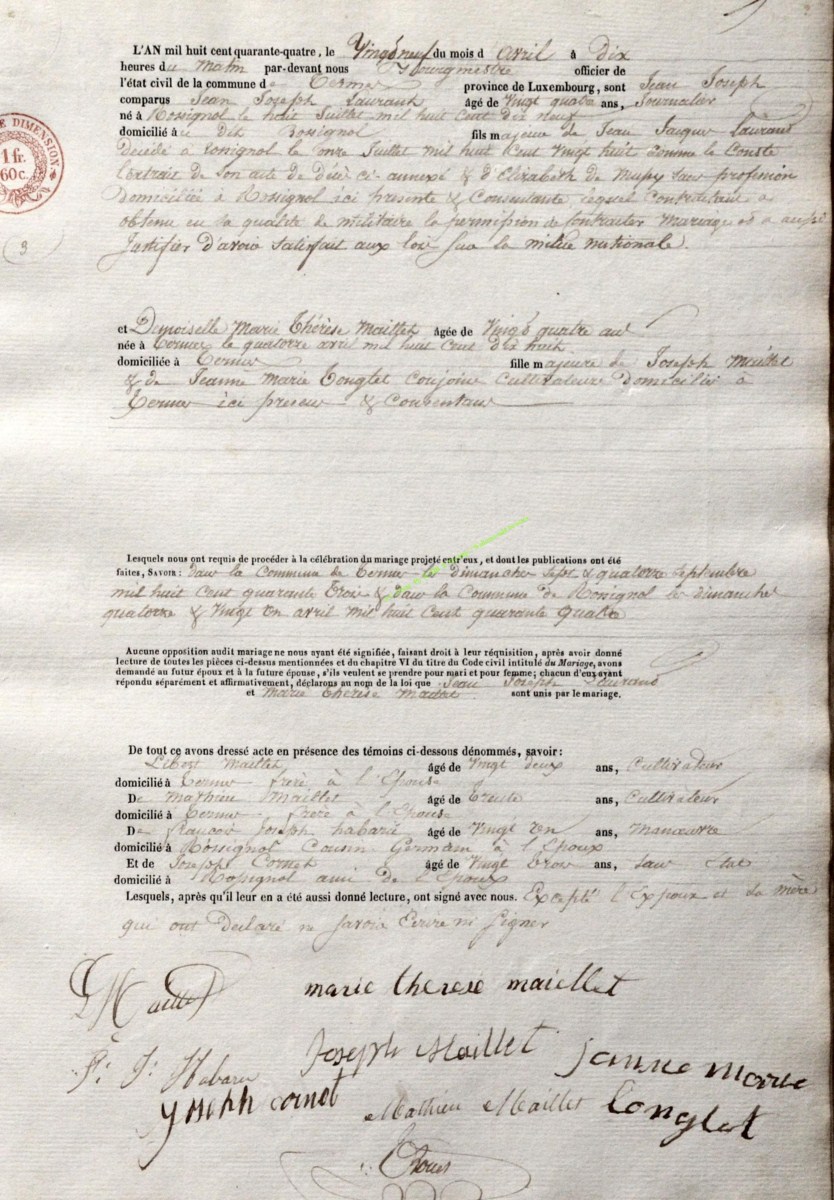 L'AN mil huit cent quarante-quatre, le Vingt neuf du mois d avril à Dix
heures du matin par-devant nous Bourgmestre officier de
l'état civil de la commune de Termes province de Luxembourg, sont
comparus Jean Joseph Laurand âgé de Vingt quatre ans, Journalier
né à Rossignol le huit Juillet mil huit Cent Dix neuf
domicilié à u dit Rossignol fils majeure de Jean Jacques Laurand
Décédé à Rossignol le onze Juillet mil huit Cent Vingt huit comme le Conste
l'extrait de son acte de Décè ci-annexé & d'Elizabeth de Mupy sans profession
Domiciliée à Rossignol ici presente & Consentante, lequel Contractant a
obtenu en sa qualité de militaire la permission de Contracter mariage et a aussi
Justifier d'avoir Satisfait aux lois sur la milice nationale.
3
et Demoiselle Marie Thérèse Maillet âgée de Vingt quatre ans
née à Termes le quatorze avril mil huit Cent Dix huit
domiciliée à Termes fille majeure de Joseph Maillet
& de Jeanne Marie Longlet Conjoins Cultivateurs Domiciliés à
Termes ici presens & Consentans
Lesquels nous ont requis de procéder à la célébration du mariage projeté entr'eux, et dont les publications ont été
faites, SAVOIR : Dans la Commune de Termes le Dimanches Sept & quatorze Septembre
mil huit Cent quarante Trois & Dans la Commune de Rossignol les Dimanches
quatorze & Vingt en avril mil huit Cent quarante Quatre
Aucune opposition audit mariage ne nous ayant été signifiée, faisant droit à leur réquisition, après avoir donné
lecture de toutes les pièces ci-dessus mentionnées et du chapitre VI du titre du Code civil intitulé du Mariage, avons
demandé au futur époux et à la future épouse, s'ils veulent se prendre pour mari et pour femme; chacun d'eux ayant
répondu séparément et affirmativement, déclarons au nom de la loi que Jean Joseph Laurand
et Marie Thérèse Maillet sont unis par le mariage.
De tout ce avons dressé acte en présence des témoins ci-dessous dénommés, savoir :
Maillet âgé de Vingt deux ans, Cultivateur
domicilié à Termes frère à l'Epouse
De Mathieu Maillet âgé de Trente ans, Cultivateur
domicilié à Termes frère à l'Epouse
De Joseph habaru âgé de Vingt en ans, Manœuvre
domicilié à Rossignol Cousin Germain à l'Epoux
Et de Joseph Cornet âgé de Vingt trois ans, Sans état
domicilié à Rossignol ami de l'Epoux
Lesquels, après qu'il leur en a été aussi donné lecture, ont signé avec nous. Excepté l'Expoux et sa mère
qui ont Déclaré ne Savoir Ecrire ni Signer
L Maillet
marie therese maiellet
Joseph Maillet
jeanne marie
P. J. Habaru
Joseph cornet
Mathieu Maillet
Longlet
DIMENSION
1 fr.
60 c.